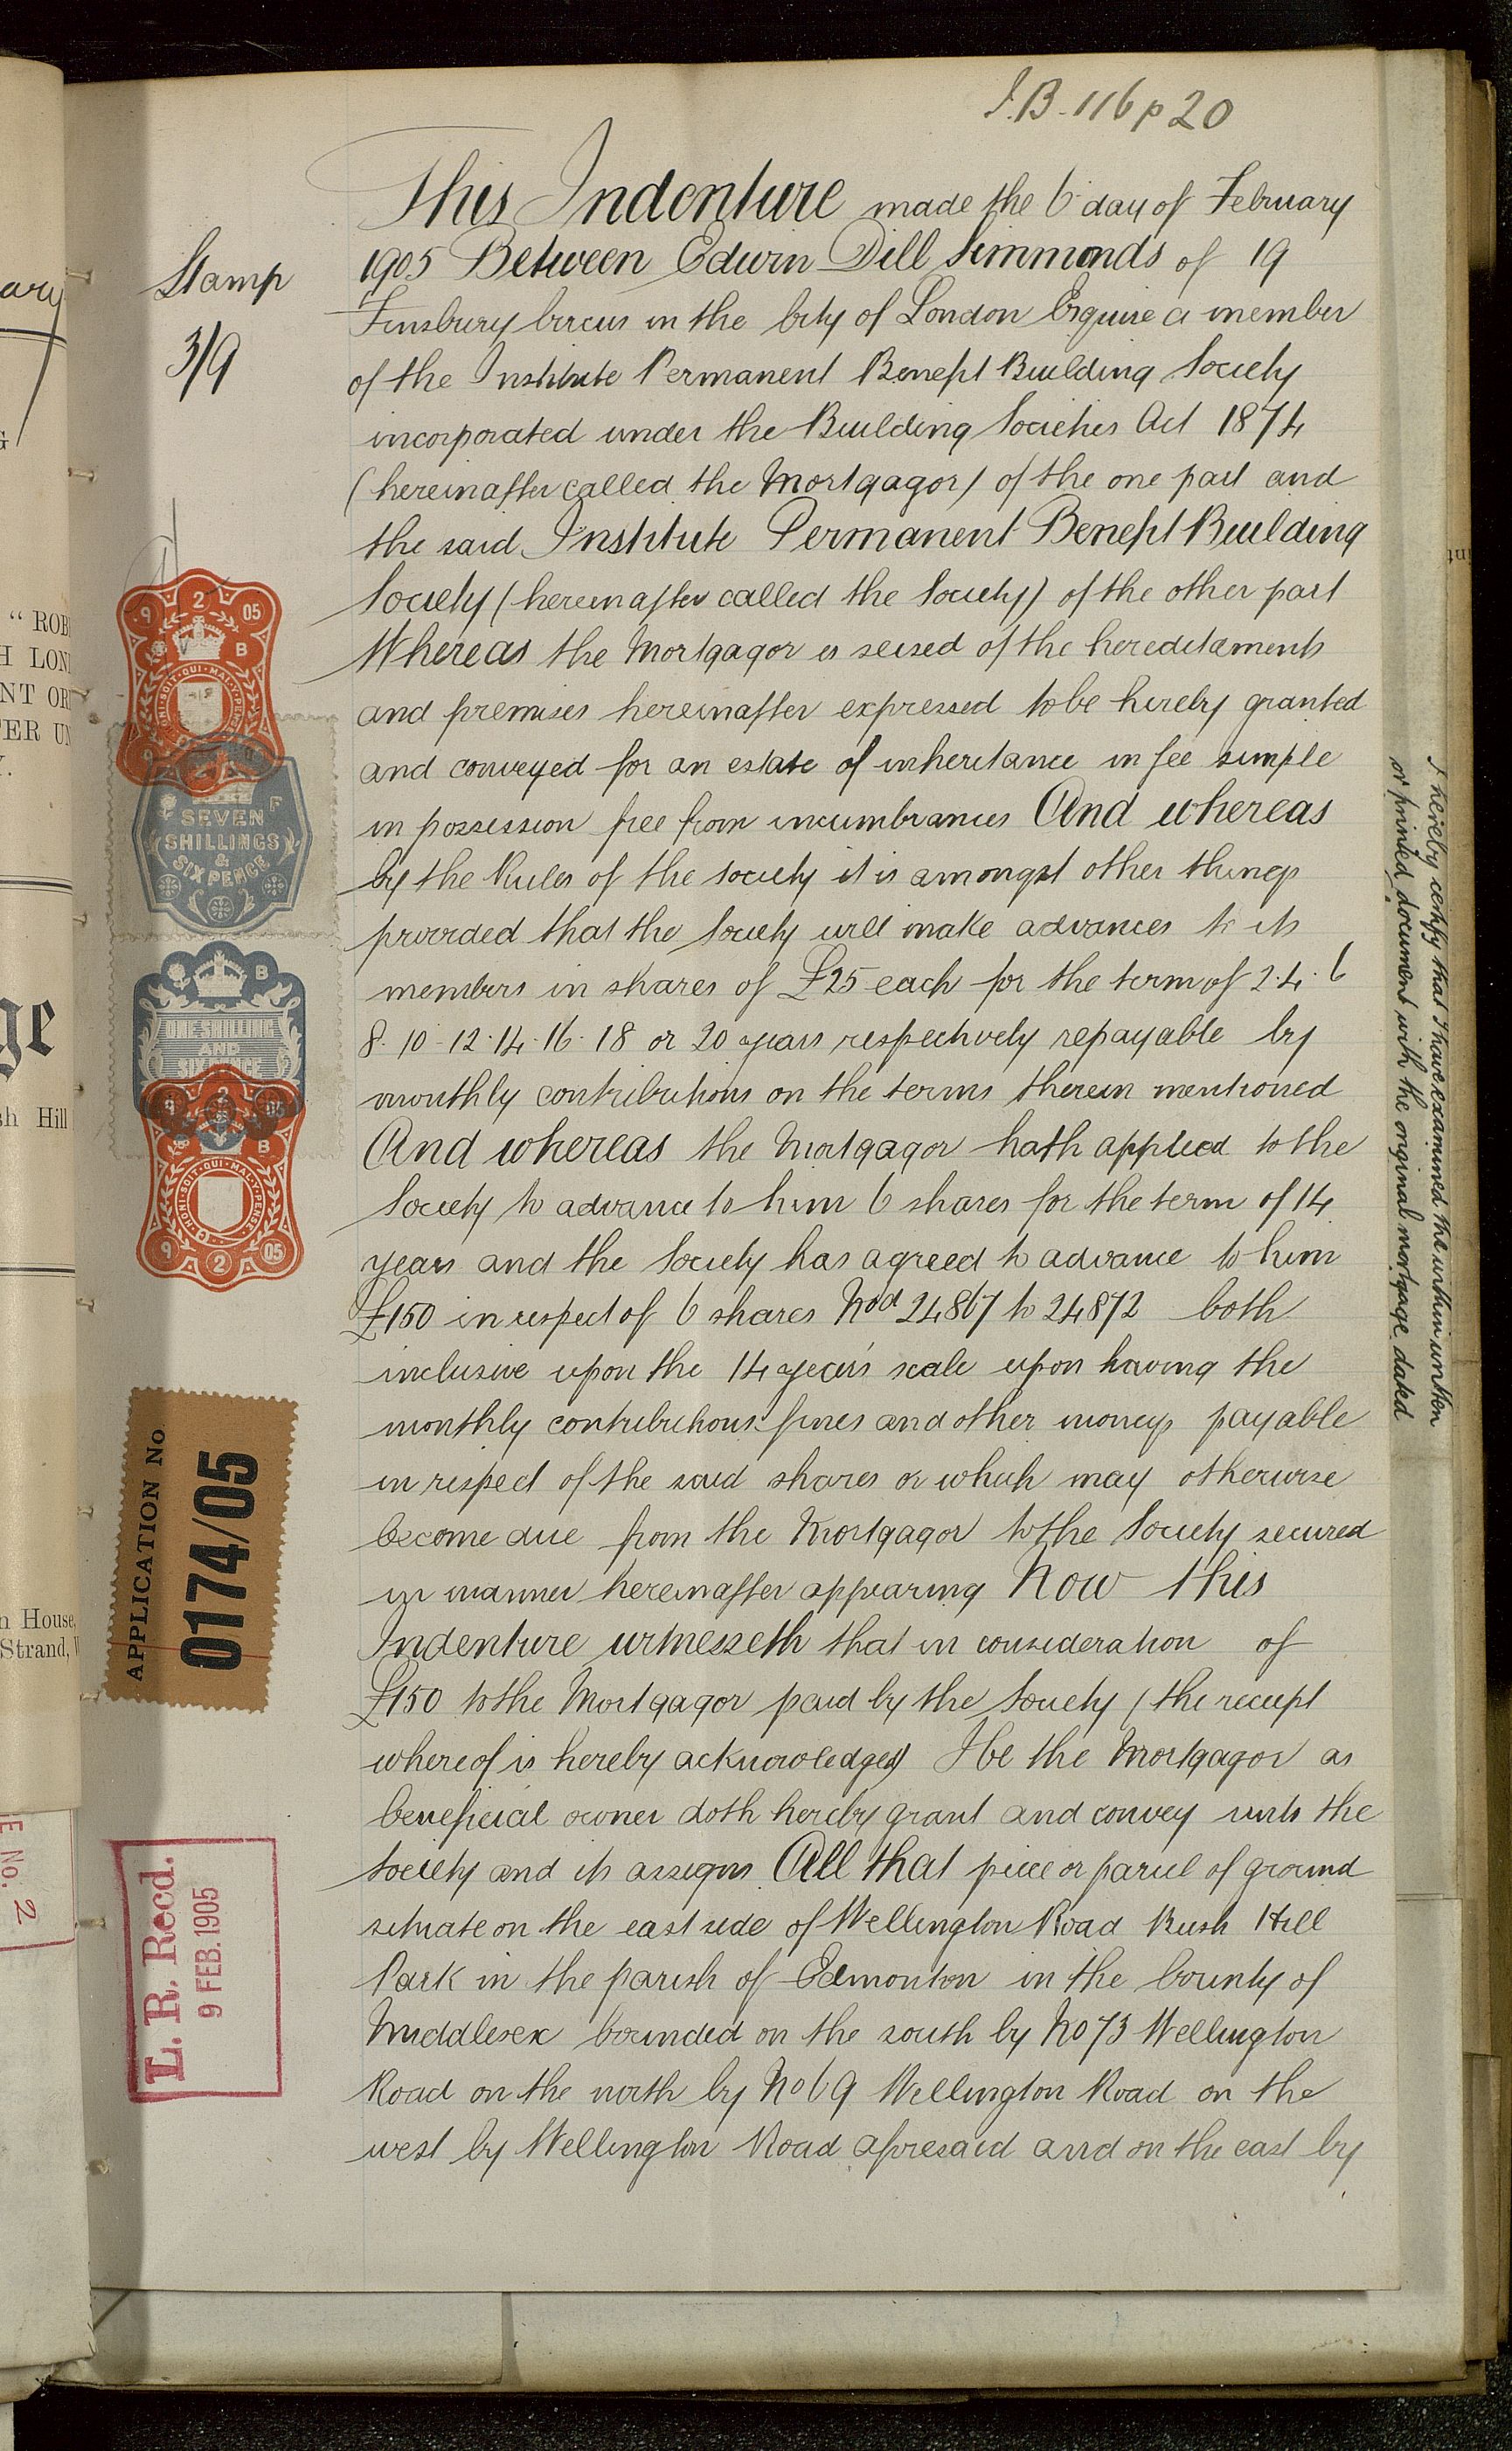 I.B. 116 p 20
This Indenture made the 6 day of February
1905 Between Edwin Dill Simmonds of 19
Finsbury Circus in the City of London Esquire a member
of the Institute Permanent Benefit Building Society
incorporated under the Building Societies Act 1874
(hereinafter called the Mortgagor) of the one part and
the said Institute Permanent Benefit Building
Society (hereinafter called the Society) of the other part
Whereas the Mortgagor is seised of the hereditaments
and premises hereinafter expressed to be hereby granted
and conveyed for an estate of inheritance in fee simple
in possession free from incumbrances And whereas
by the Rules of the Society it is amongst other things
provided that the Society will make advances to its
members in shares of £25 each for the term of 2. 4. 6
8. 10 - 12. 14. 16. 18 or 20 years respectively repayable by
monthly contributions on the terms therein mentioned
And whereas the Mortgagor hath applied to the
Society to advance to him 6 shares for the term of 14
years and the Society has agreed to advance to him
£150 in respect of 6 shares Nod 24867 to 24872 both
inclusive upon the 14 year's scale upon having the
monthly contributions fines and other moneys payable
in respect of the said shares or which may otherwise
become due from the Mortgagor to the Society secured
in manner hereinafter appearing Now this
Indenture witnesseth that in consideration of
£150 to the Mortgagor paid by the Society (the receipt
whereof is hereby acknowledged) He the Mortgagor as
beneficial owner doth hereby grant and convey unto the
Society and its assigns All that piece or parcel of ground
situate on the east side of Wellington Road Bush Hill
Park in the parish of Edmonton in the County of
Middlesex bounded on the south by No 73 Wellington
Road on the north by No 69 Wellington Road on the
west by Wellington Road aforesaid and on the east by
Stamp
3/9
9 2 05
V B
HONI·SOIT·QUI·MAL·Y·PENSE
SEVEN
SHILLINGS
&
SIXPENCE
B
ONE SHILLING
AND
SIXPENCE
9 2 05
B
HONI·SOIT·QUI·MAL·Y·PENSE
9 2 05
APPLICATION No
0174/05
L. R. Recd.
9 FEB. 1905
I hereby certify that I have examined the within written
or printed document with the original mortgage dated
ary
G
"ROB
H LON
NT OR
TER UN
Y.
ge
sh Hill
n House,
Strand, W
E No. 2